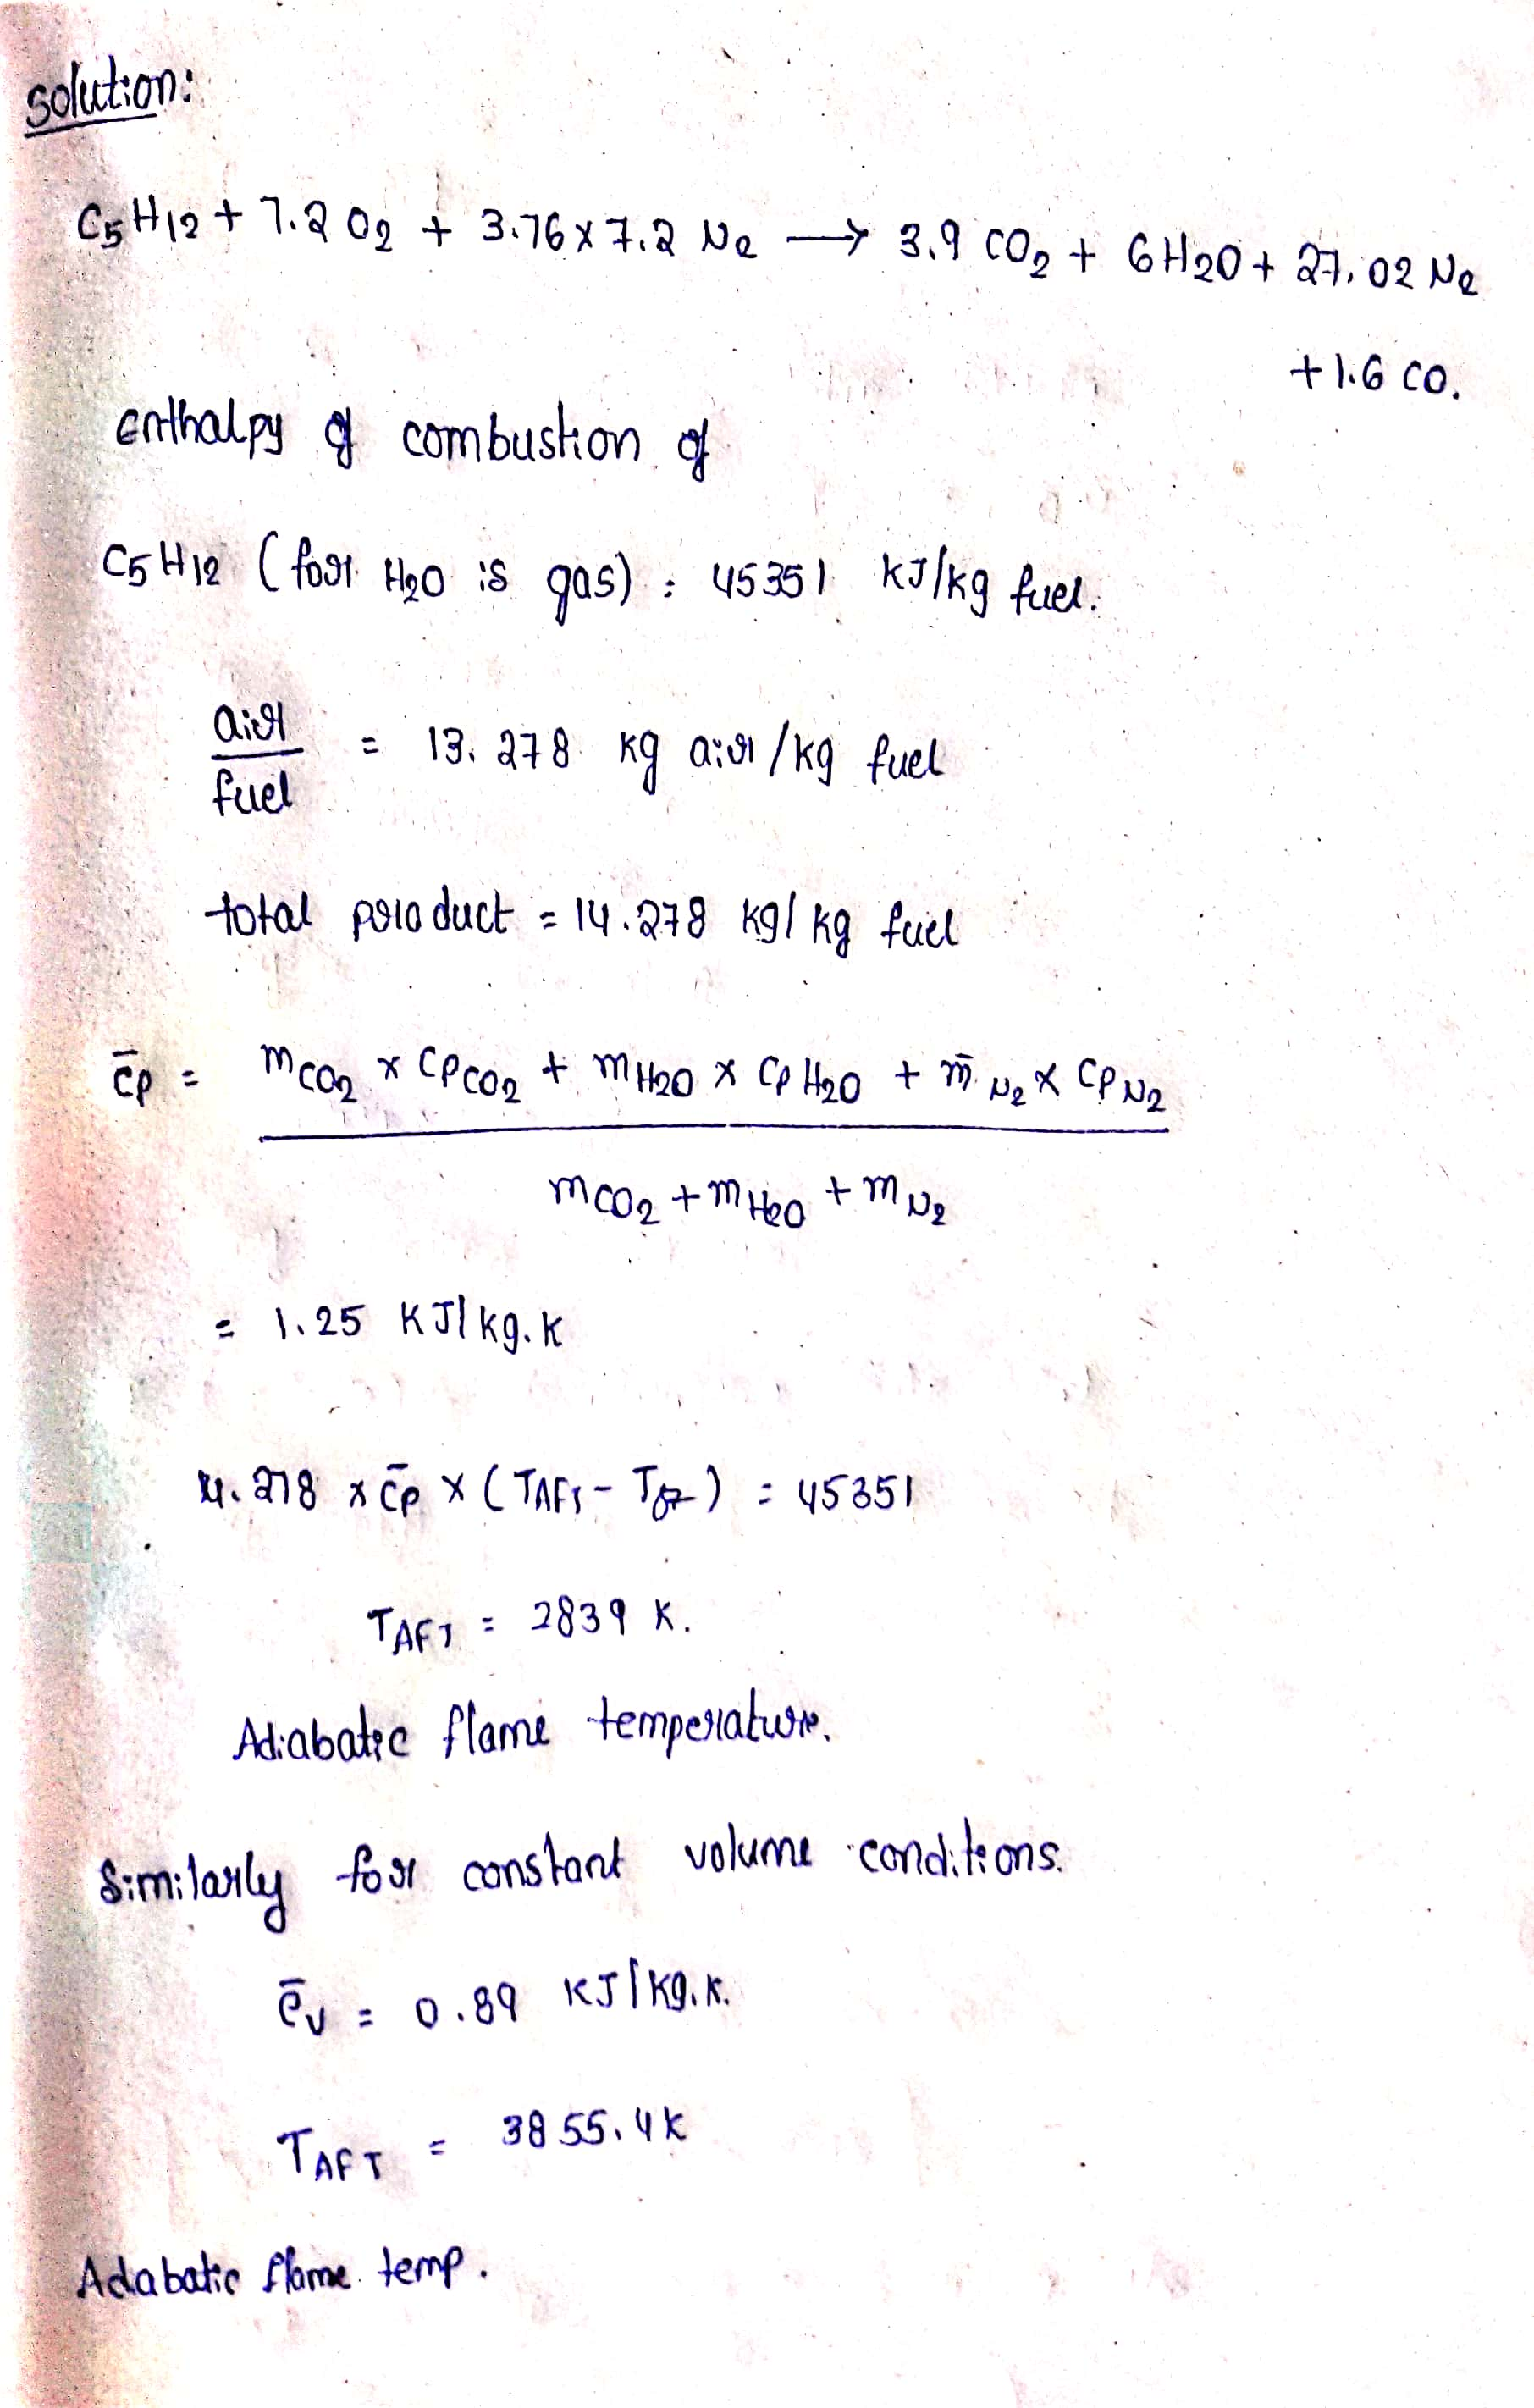 solution:
C5H12 + 7.2 O2 + 3.76 x 7.2 N2 → 3.9 CO2 + 6H2O + 27.02 N2
+ 1.6 CO.
Enthalpy of combustion of
C5H12 (for H2O is gas) : 45351 KJ/kg fuel.
air/fuel = 13.278 kg air/kg fuel
total product = 14.278 kg/kg fuel
C̄p = (mCO2 x CpCO2 + mH2O x CpH2O + m̄N2 x CPN2) / (mCO2 + mH2O + mN2)
= 1.25 KJ/kg.K
14.278 x C̄p x (TAFT - ) = 45351
TAFT = 2839 K.
Adiabatic flame temperature.
Similarly for constant volume conditions.
C̄v = 0.89 KJ/kg.K.
TAFT = 3855.4K
Adabatic flame temp.